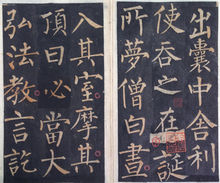 出囊中舍利
使吞之在誕
所夢僧白晝
入其室摩其
頂曰必當大
弘法教言訖